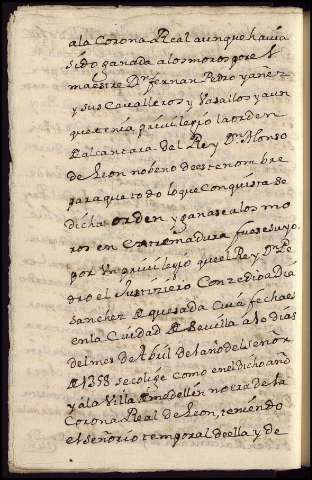 ala Corona Real aunque havia
sido ganada alos moros por el
maestre Dn fernan Pedro yanez
y sus Cavalleros y Vasallos y aun
que tenia privilegio la orden
de alcantara del Rey Dn Alonso
de Leon nobeno de este nombre
para que todo lo que Conquistase
dicha orden y ganase alos mo
ros en Extremadura fuese suyo.
por Un privilegio que el Rey Dn Pe
dro el Justiziero Conzedio a Dia
Sanchez de quesada Cuia fecha es
en la Ciudad de Sevilla a 10 dias
del mes de Abril del año del señor
de 1358 se colige como en el dicho año
ya la Villa de medellin no era de la
Corona Real de Leon, teniendo
el señorio temporal de ella y de